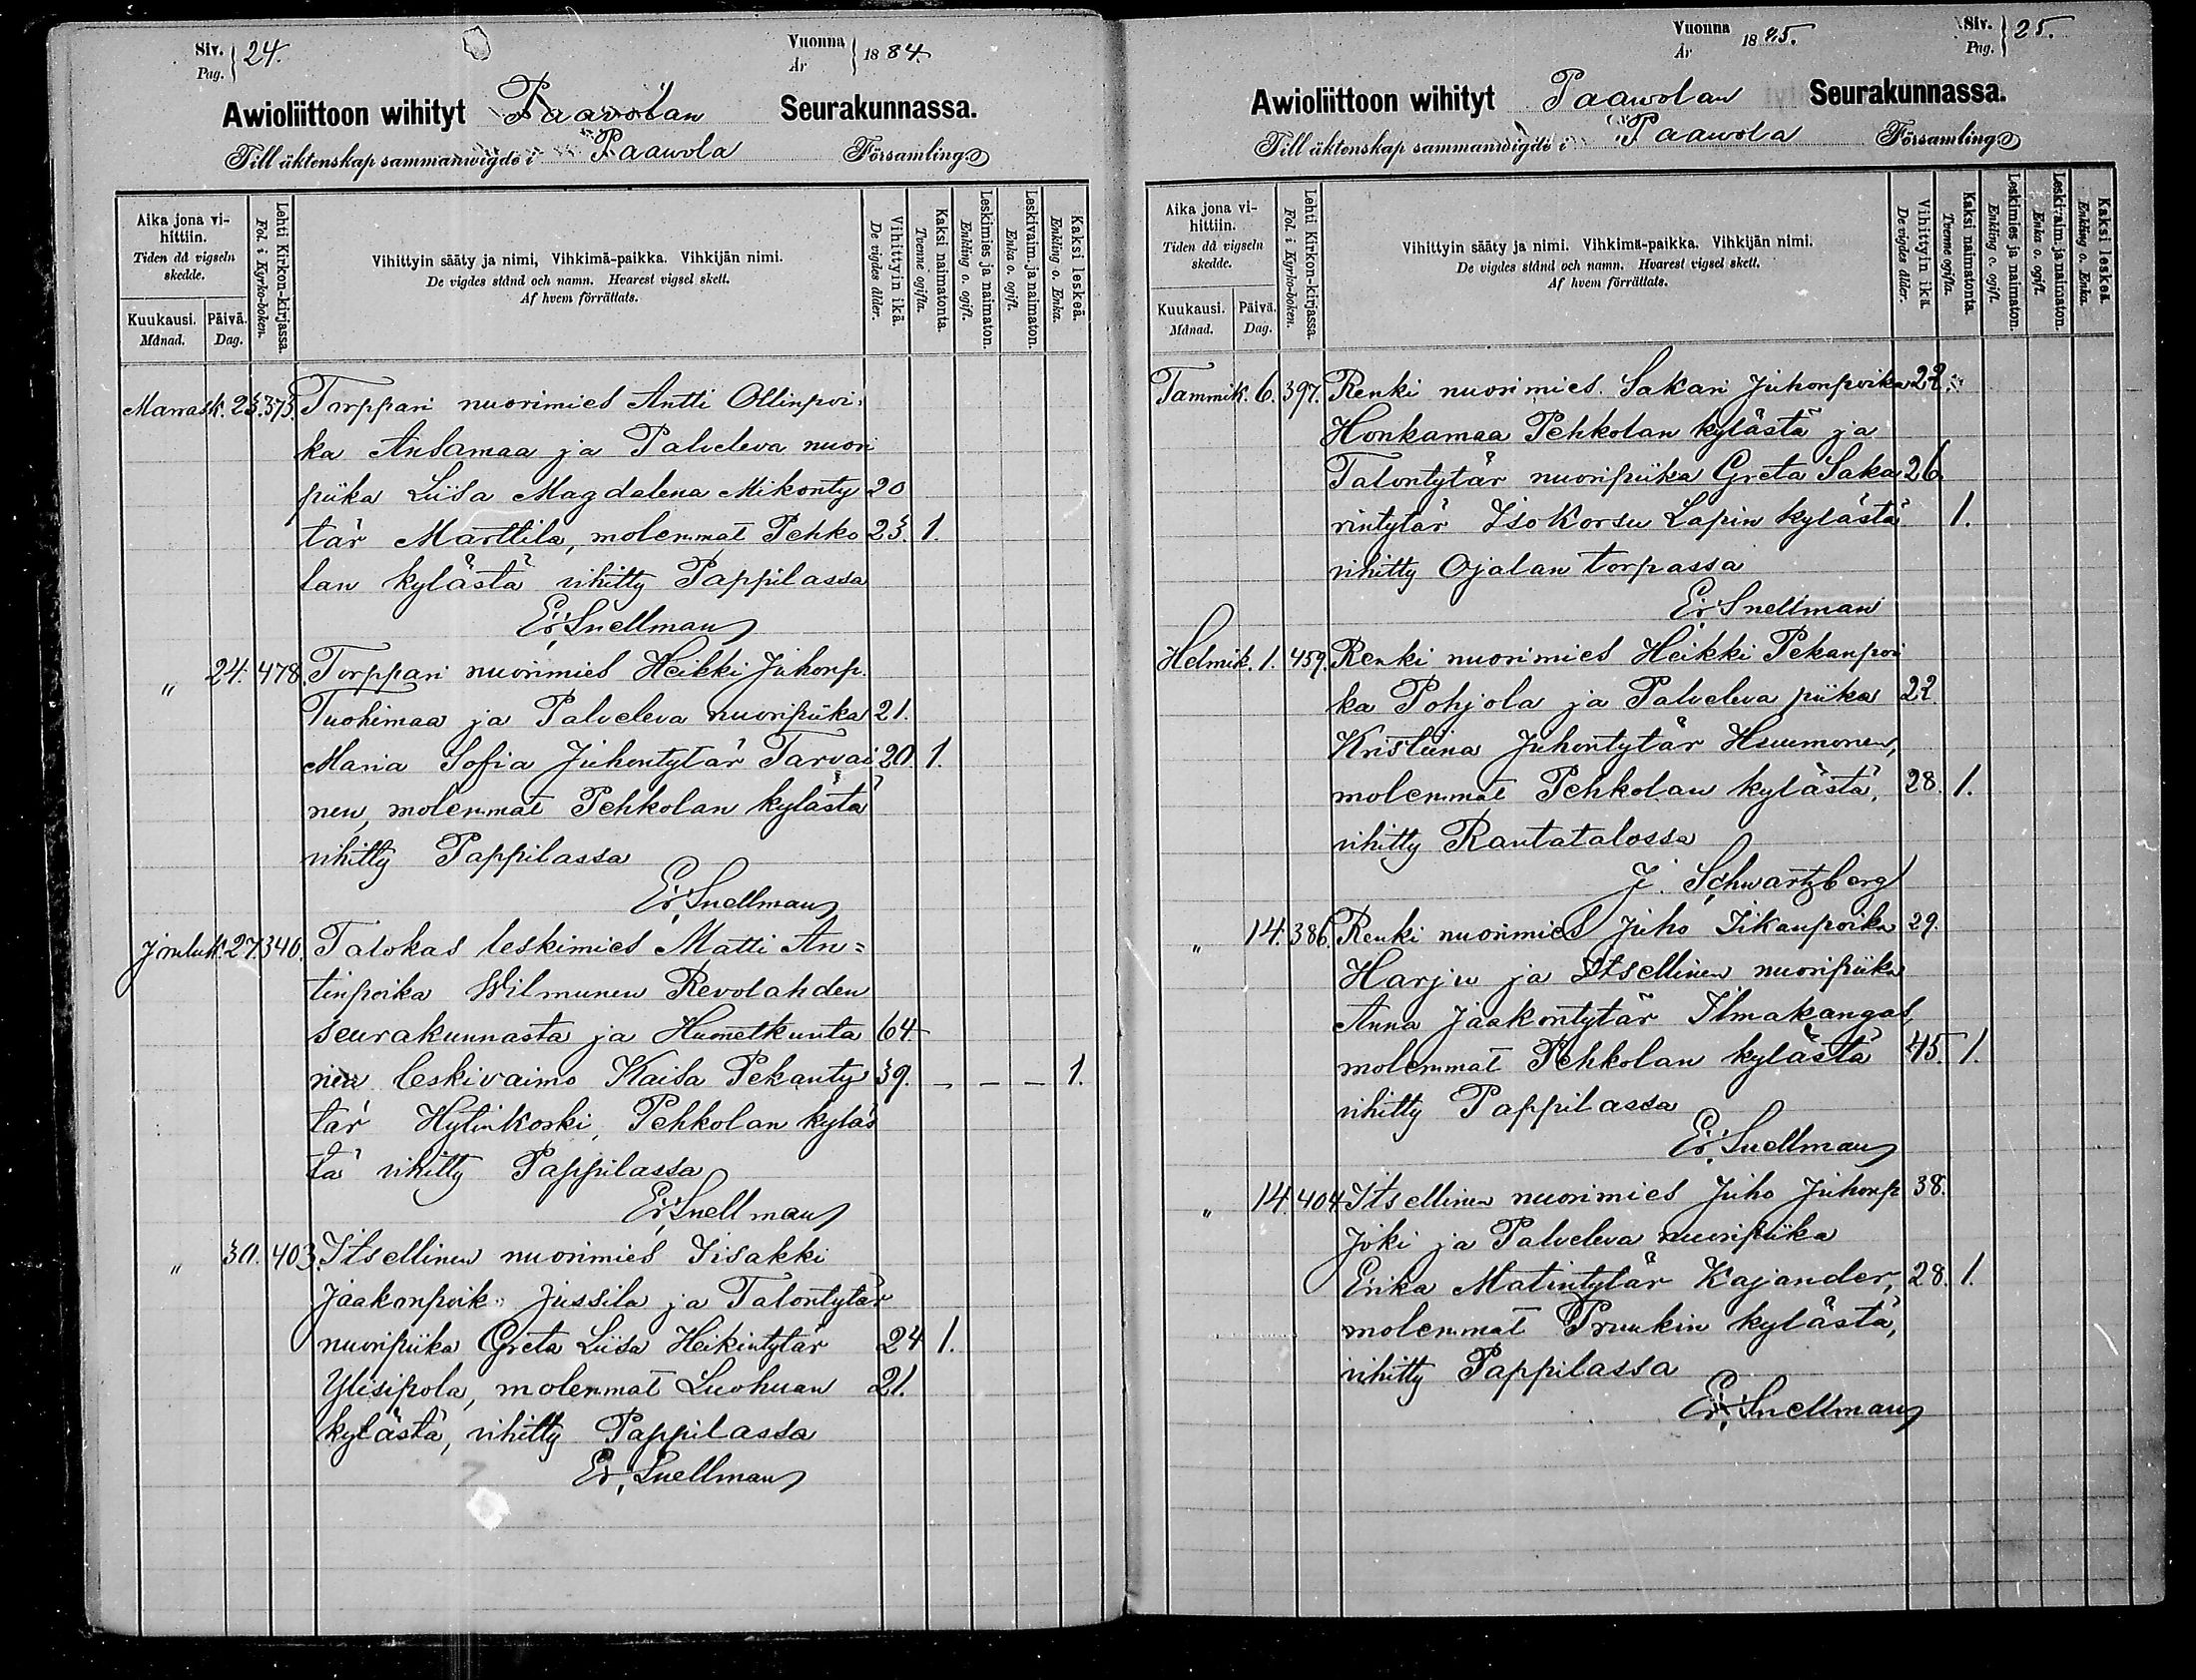 Siv. Pag. 24.
Vuonna År 1884.
Awioliittoon wihityt Paavolan Seurakunnassa.
Till äktenskap sammanwigde i Paavola Församling
Aika jona vihittiin. Tiden då vigseln skedde.
Kuukausi. Månad.
Päivä. Dag.
Lehti Kirkon-kirjassa. Fol. i Kyrko-boken.
Vihittyin sääty ja nimi, Vihkimä-paikka. Vihkijän nimi.
De vigdes stånd och namn. Hvarest vigsel skett.
Af hvem förrättats.
Vihittyin ikä. De vigdes ålder.
Kaksi naimatonta. Tvenne ogifta.
Leskimies ja naimaton. Enkling o. ogift.
Leskivaim. ja naimaton. Enka o. ogift.
Kaksi leskeä. Enkling o. Enka.
Marrask. 23. 375. Torppari nuorimies Antti Ollinpoi-
ka Ansamaa ja Palveleva nuori
piika Liisa Magdalena Mikonty 20
tär Marttila, molemmat Pehko 23. 1.
lan kylästä vihitty Pappilassa
Er. Snellman
" 24. 478. Torppari nuorimies Heikki Juhonp.
Tuohimaa ja Palveleva nuoripiika 21.
Maria Sofia Juhontytär Tarvai 20. 1.
nen, molemmat Pehkolan kylästä
vihitty Pappilassa
Er. Snellman
Jouluk. 27. 340. Talokas leskimies Matti An=
tinpoika Wilmunen Revolahden
seurakunnasta ja Huonetkunta 64.
nen leskivaimo Kaisa Pekanty 39. – – – 1.
tär Hylinkoski, Pehkolan kyläs
tä vihitty Pappilassa
Er. Snellman
" 30. 403. Itsellinen nuorimies Iisakki
Jaakonpoik. Jussila ja Talontytär
nuoripiika Greta Liisa Heikintytär 24 1.
Ylisipola, molemmat Luohuan 21.
kylästä, vihitty Pappilassa
Er. Snellman
Vuonna År 1885.
Siv. Pag. 25.
Awioliittoon wihityt Paavolan Seurakunnassa.
Till äktenskap sammanwigde i Paavola Församling
Aika jona vihittiin. Tiden då vigseln skedde.
Kuukausi. Månad.
Päivä. Dag.
Lehti Kirkon-kirjassa. Fol. i Kyrko-boken.
Vihittyin sääty ja nimi. Vihkimä-paikka. Vihkijän nimi.
De vigdes stånd och namn. Hvarest vigsel skett.
Af hvem förrättats.
Vihittyin ikä. De vigdes ålder.
Kaksi naimatonta. Tvenne ogifta.
Leskimies ja naimaton. Enkling o. ogift.
Leskivaim. ja naimaton. Enka o. ogift.
Kaksi leskeä. Enkling o. Enka.
Tammik. 6. 397. Renki nuorimies Sakari Juhonpoika 22.
Honkamaa Pehkolan kylästä ja
Talontytär nuoripiika Greta Saka 26.
rintytär IsoKorsu Lapin kylästä 1.
vihitty Ojalan torpassa
Er. Snellman
Helmik. 1. 459. Renki nuorimies Heikki Pekanpoi
ka Pohjola ja Palveleva piika 22.
Kristiina Juhontytär Huumonen,
molemmat Pehkolan kylästä, 28. 1.
vihitty Rantatalossa
J. Schwartzberg
" 14. 386. Renki nuorimies Juho Iikanpoika 29.
Harju ja Itsellinen nuoripiika
Anna Jaakontytär Ilmakangas,
molemmat Pehkolan kylästä 45. 1.
vihitty Pappilassa
Er. Snellman
" 14. 404. Itsellinen nuorimies Juho Juhonp 38.
Joki ja Palveleva nuoripiika
Erika Matintytär Kajander, 28. 1.
molemmat Pruukin kylästä,
vihitty Pappilassa
Er. Snellman